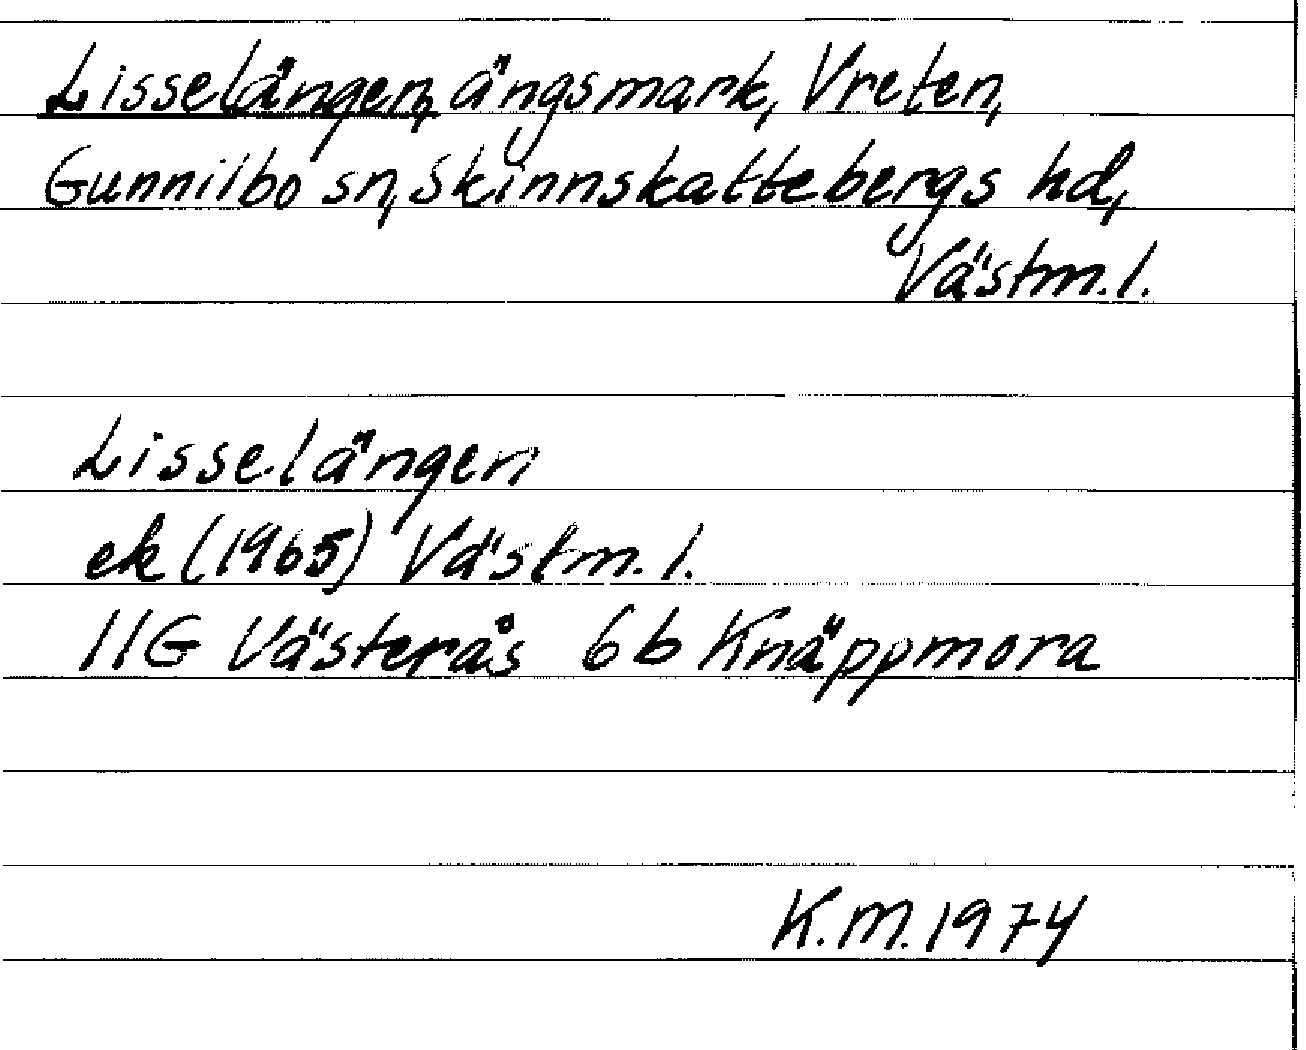 Lisselängen, ängsmark, Vreten,
Gunnilbo sn, Skinnskattebergs hd,
Västm. l.
Lisselängen
ek (1965) Västm. l.
11G Västerås 6b Knäppmora
K.M. 1974